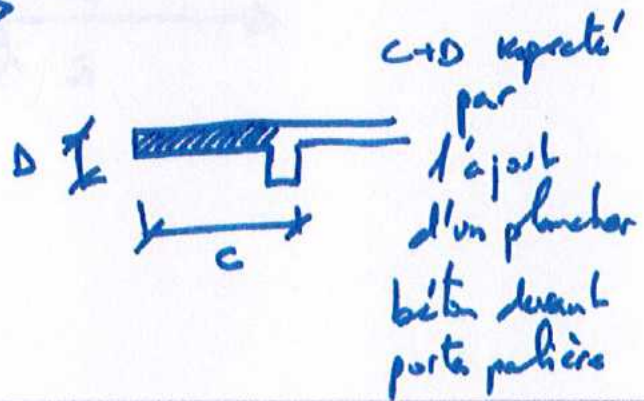 C+D respecté
par
l'ajout
d'un plancher
béton devant
portes palière
D
C